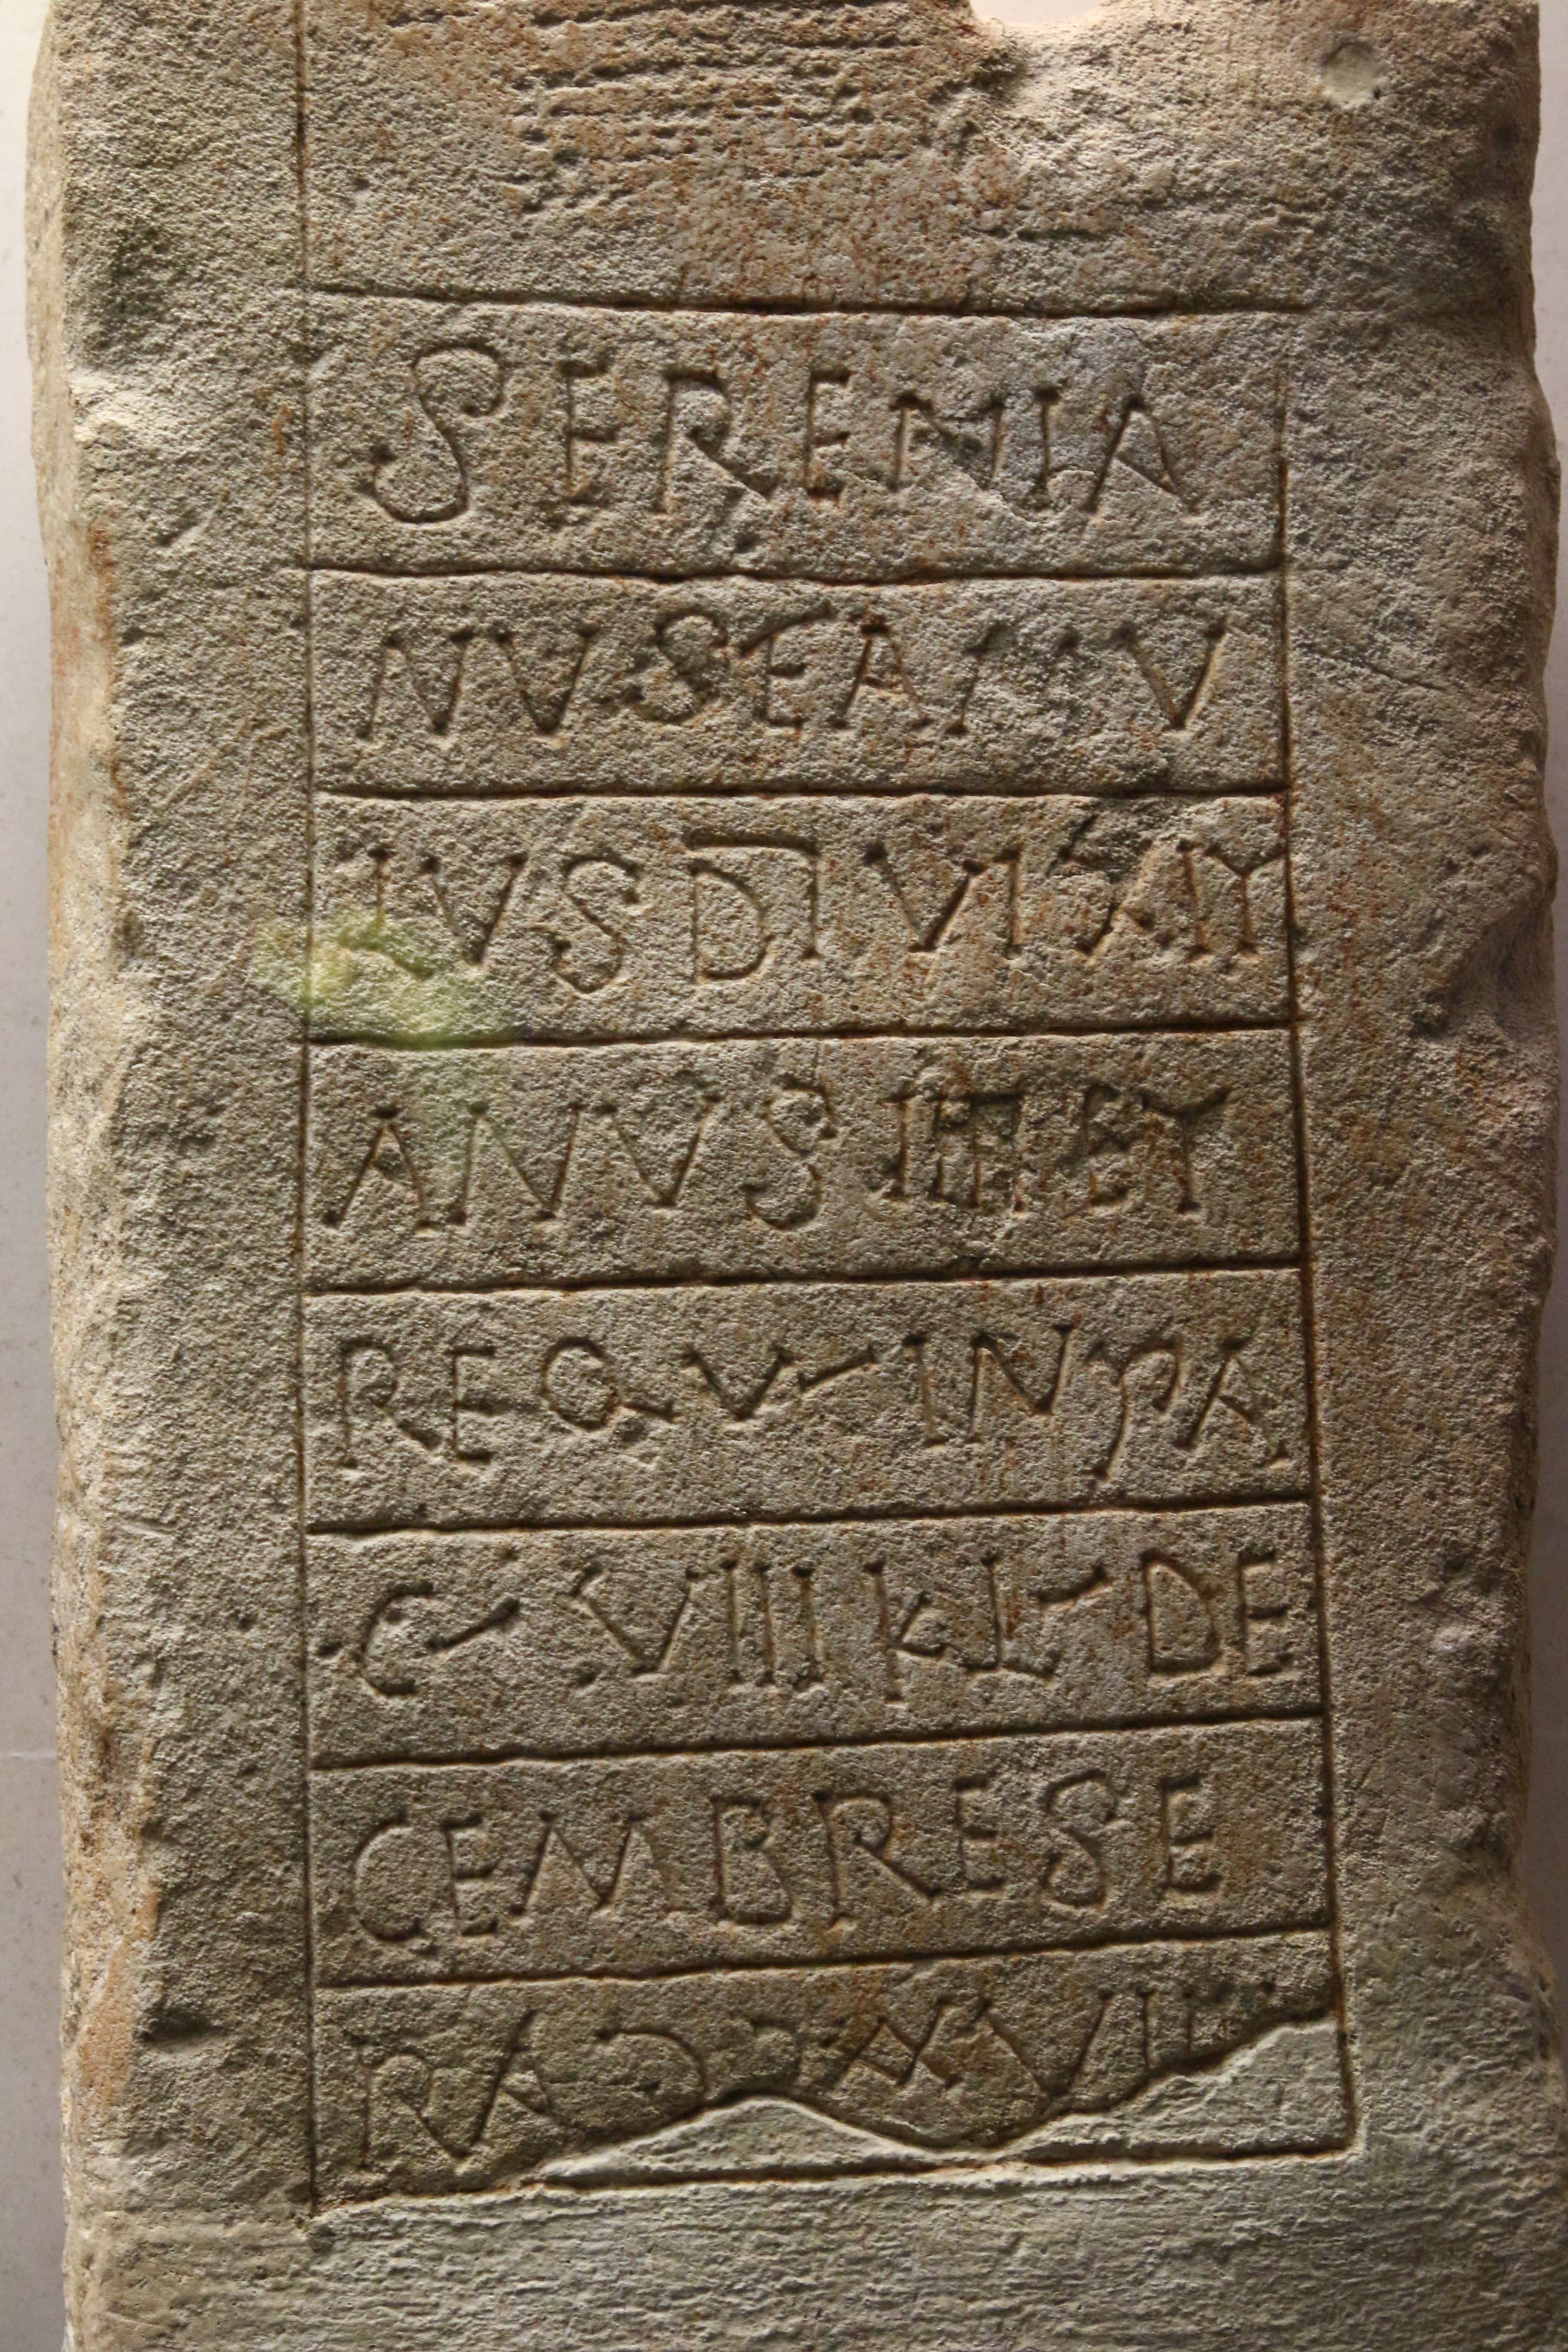 SERENIA
NVS FAMV
LVS DI VIXIT
ANVS IIII ET
REQV IN PA
C VIII KL DE
CEMBRES E
RA